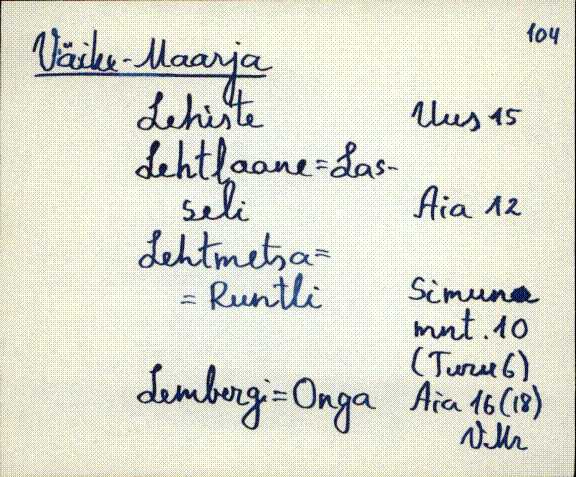 104
Väike-Maarja
Lehiste Uus 15
Lehtlaane = Las-
seli Aia 12
Lehtmetsa =
= Runtli Simuna
mnt. 10
(Turu 6)
Lembergi = Onga Aia 16 (18)
V.Mr